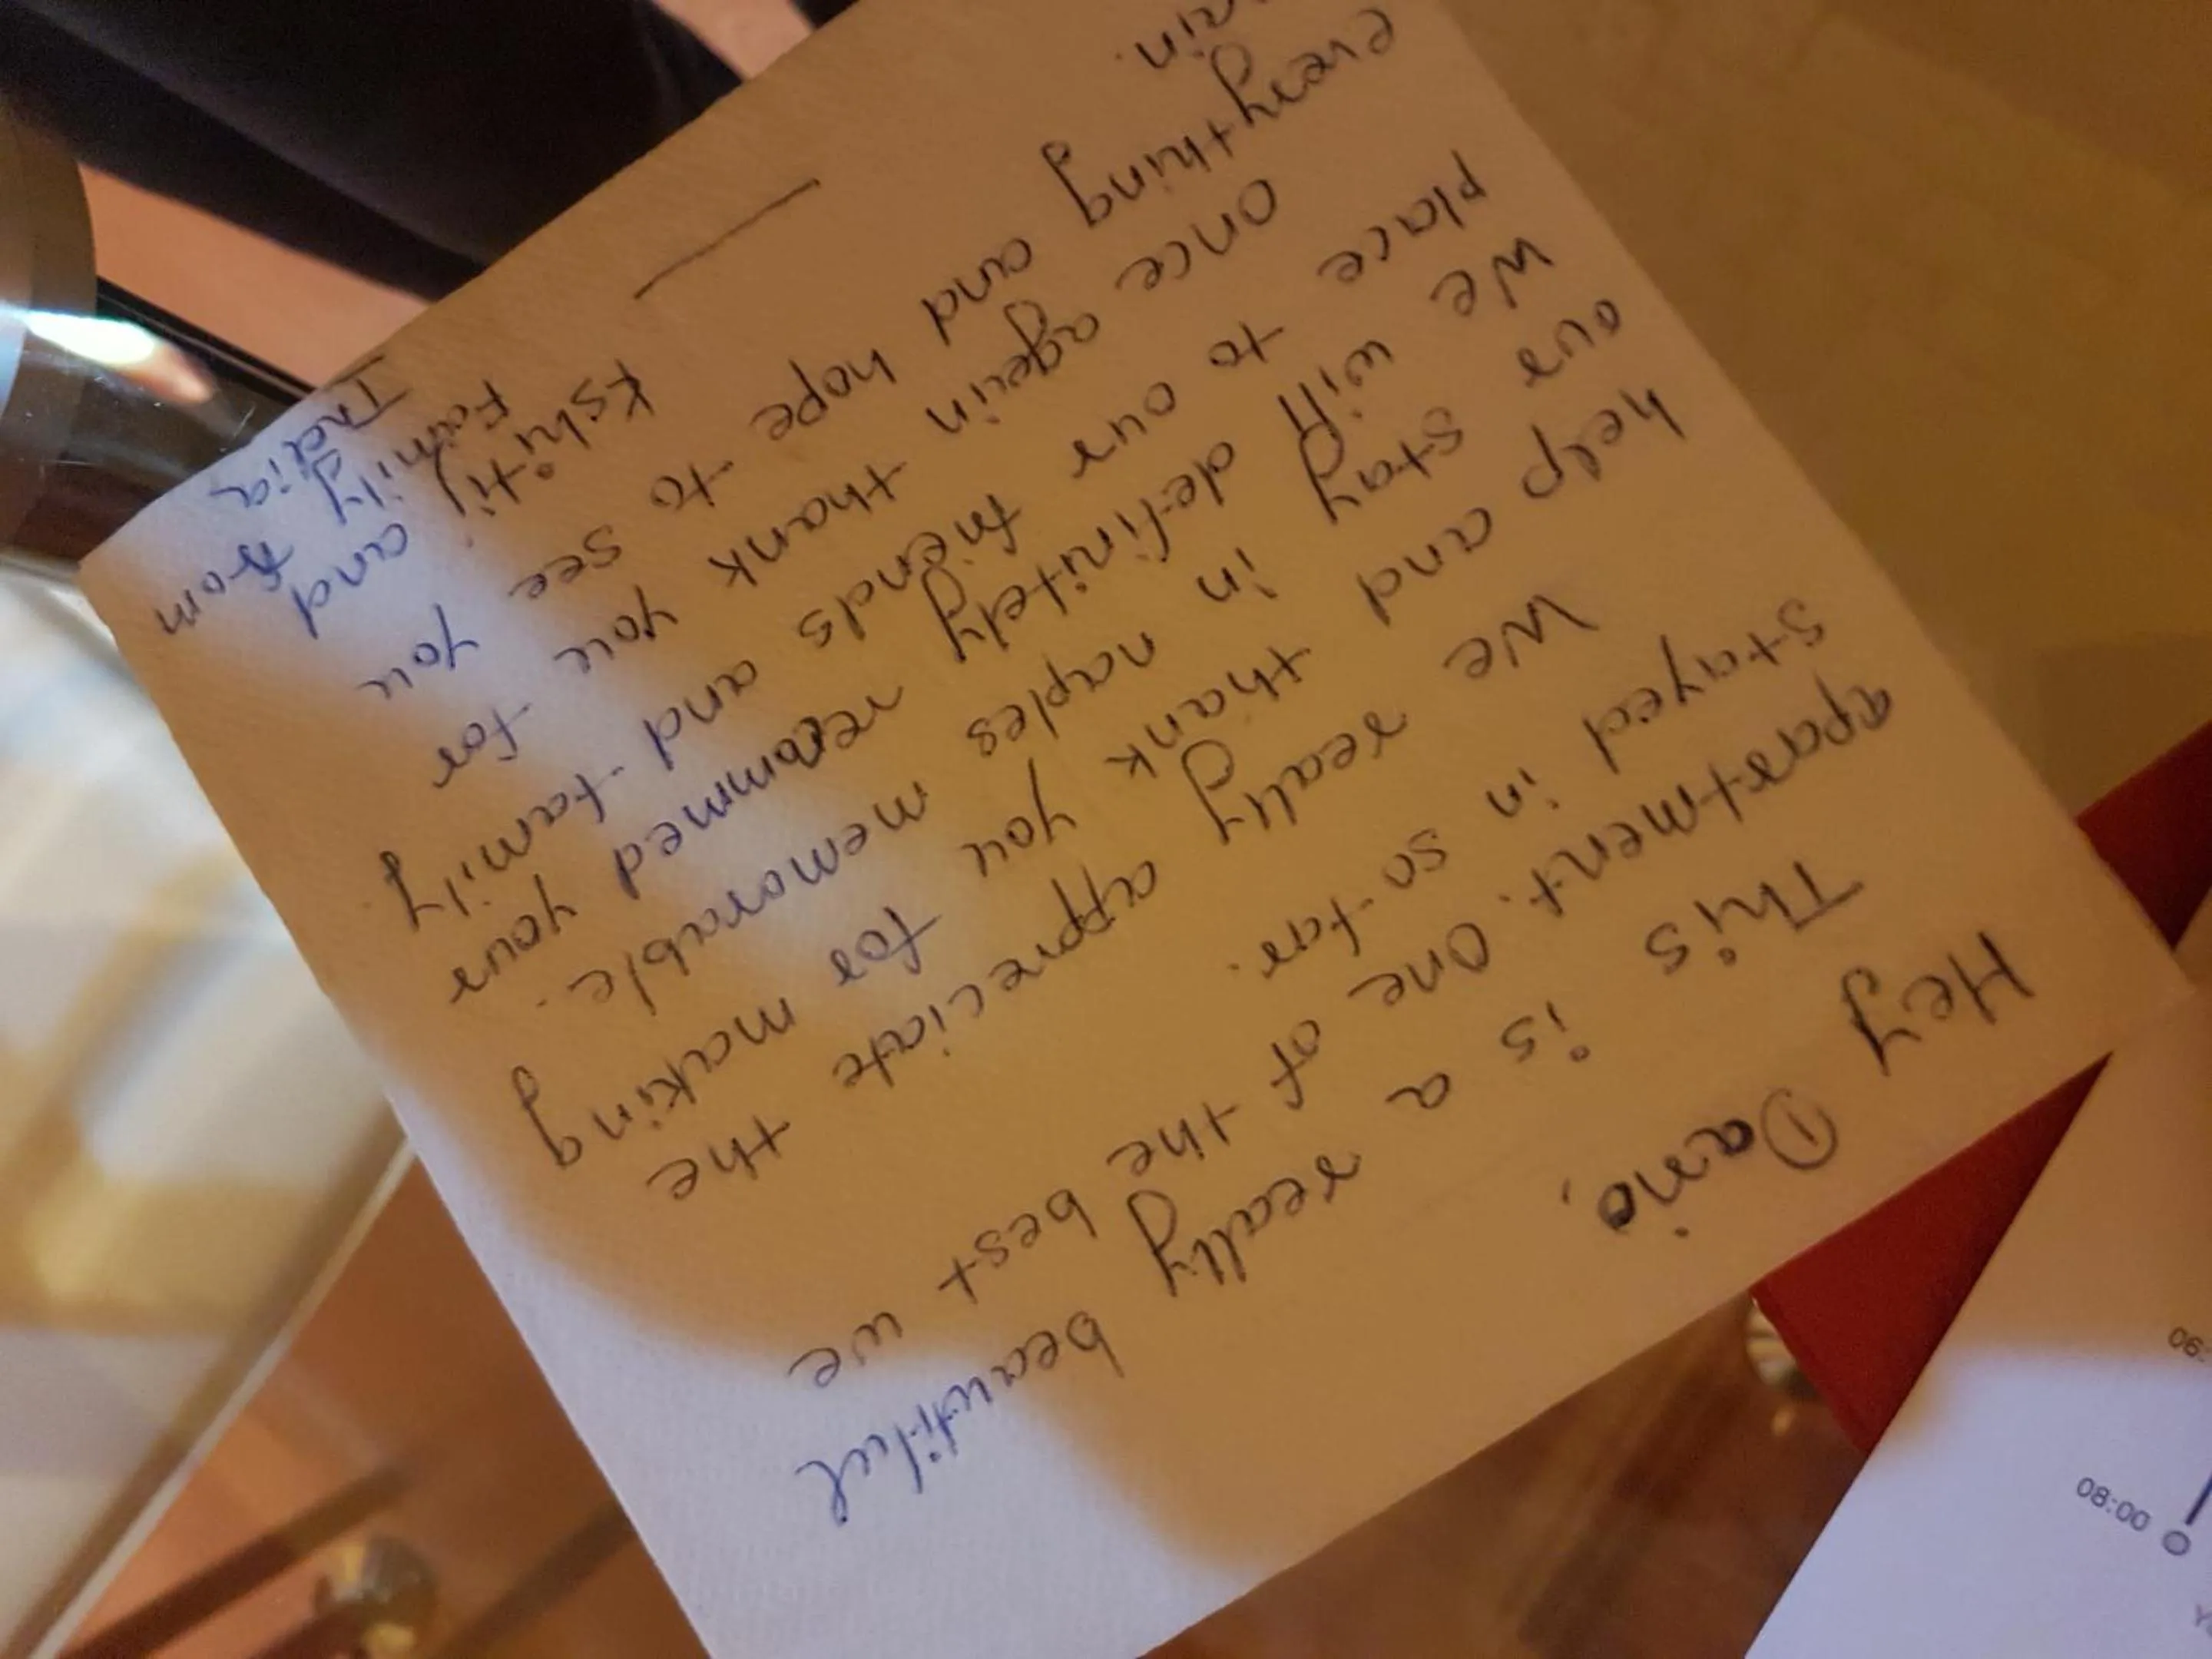 Hey Dario,
This is a really beautiful
apartment. One of the best we
stayed in so far.
We really appreciate the
help and thank you for making
our stay in naples memorable.
We will definitely recommned your
place to our friends and family.
Once again thank you for
everything and hope to see you
Kshitij and
Family from
India
06:
08:00